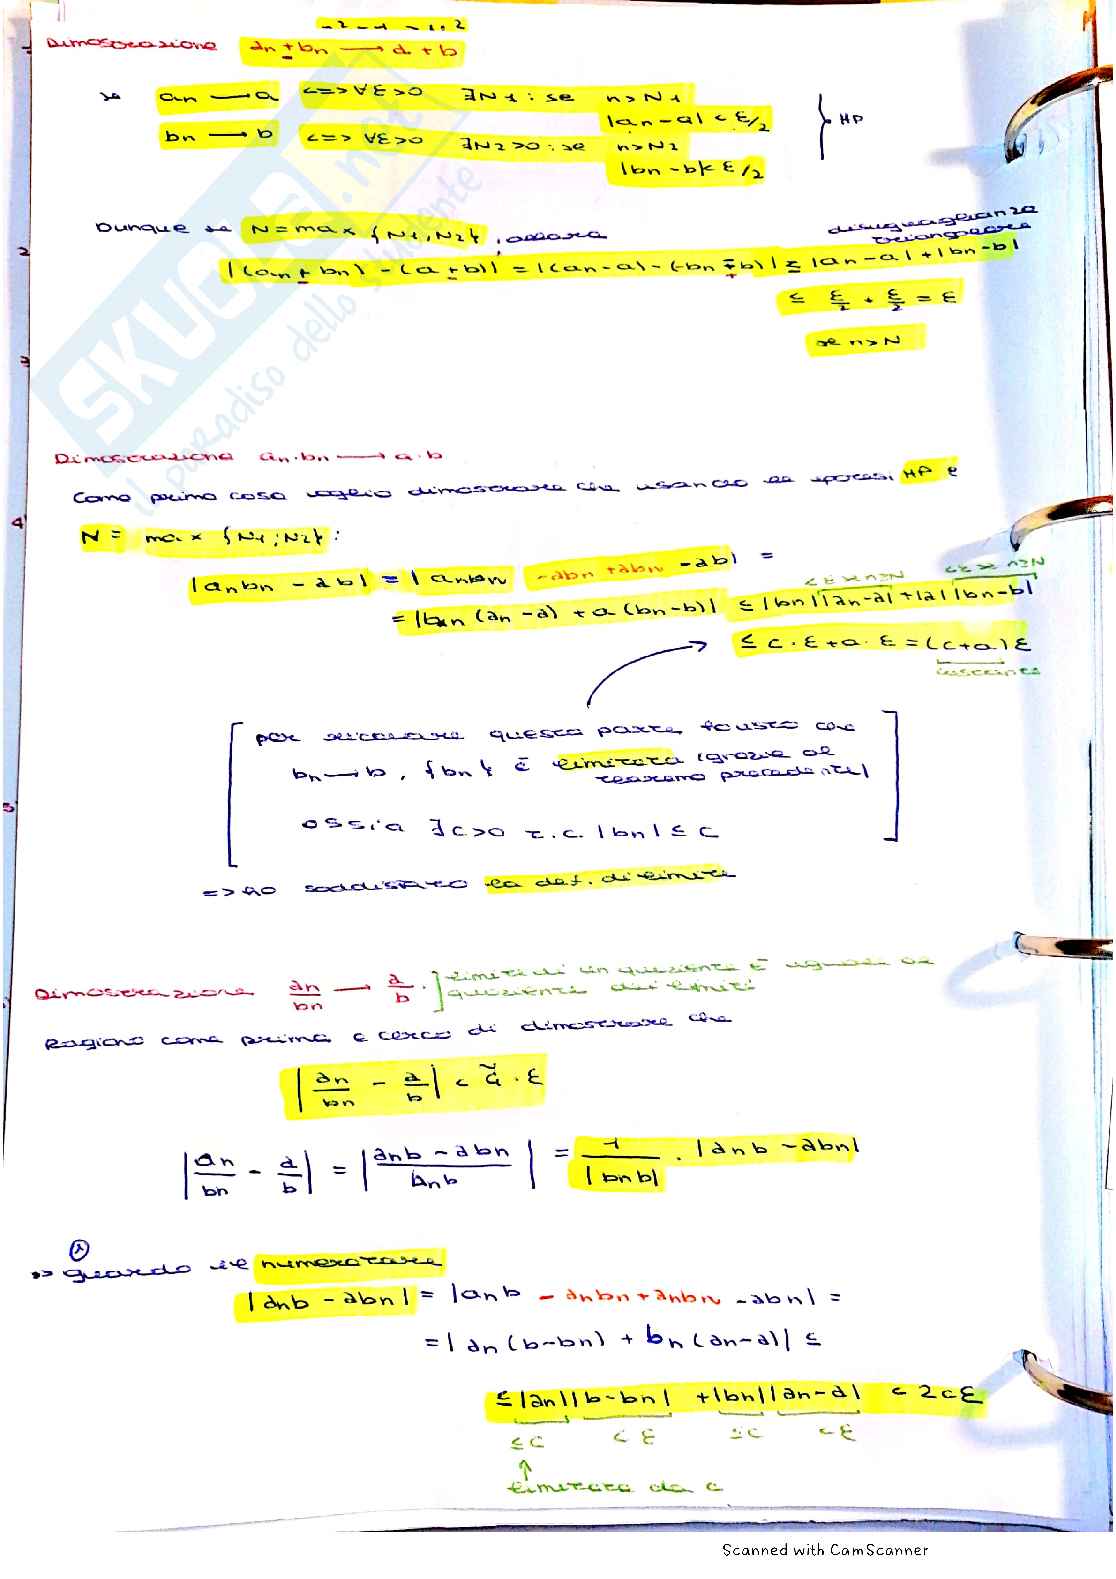 Dimostrazione an ± bn → a ± b
se an → a <=> ∀ε>0 ∃N1 : se n>N1
|an - a| < ε/2
bn → b <=> ∀ε>0 ∃N2>0 : se n>N2
|bn - b| < ε/2
} HP
Dunque se N = max {N1, N2}, ossia
disuguaglianza triangolare
|(an ± bn) - (a ± b)| = |(an - a) - (-bn ∓ b)| ≤ |an - a| + |bn - b|
≤ ε/2 + ε/2 = ε
se n>N
Dimostrazione an·bn → a·b
Come prima cosa voglio dimostrare che usando le ipotesi HP e
N = max {N1; N2} :
|anbn - ab| = |anbn -abn + abn - ab| =
<ε se n≥N <ε se n≥N
= |bn (an - a) + a (bn - b)| ≤ |bn||an - a| + |a||bn - b|
≤ c·ε + a·ε = (c+a)ε
costante
per questa parte che
bn → b, {bn} è limitata (grazie al
teorema precedente)
ossia ∃c>0 t.c. |bn| ≤ c
=> ho soddisfatto la def. di limite
Dimostrazione an/bn → a/b . ] limite di un quoziente è uguale al
quoziente dei limiti
Ragiono come prima e cerco di dimostrare che
|an/bn - a/b| < c̃ · ε
|an/bn - a/b| = |anb - abn / bnb| = 1/|bnb| · |anb - abn|
guardo il numeratore
|anb - abn| = |anb - anbn + anbn - abn| =
= |an (b - bn) + bn (an - a)| ≤
≤ |an||b - bn| + |bn||an - a| < 2cε
≤c <ε ≤c <ε
↑
limitata da c
SKUOLA.net
il paradiso dello studente
Scanned with CamScanner